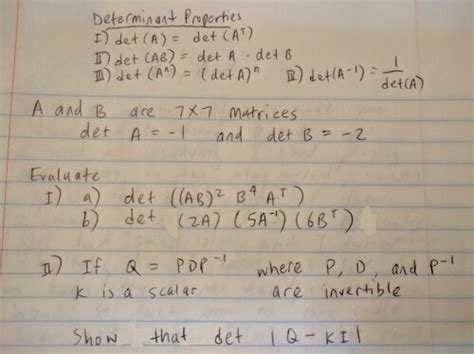 Determinant Properties
I) det (A) = det (Aᵀ)
II) det (AB) = det A · det B
III) det (Aⁿ) = (det A)ⁿ IV) det(A⁻¹) = 1/det(A)
A and B are 7x7 Matrices
det A = -1 and det B = -2
Evaluate
I) a) det ((AB)² B⁴ Aᵀ)
b) det (2A) (5A⁻¹) (6Bᵀ)
II) If Q = PDP⁻¹ where P, D, and P⁻¹
K is a scalar are invertible
Show that det |Q - KI|